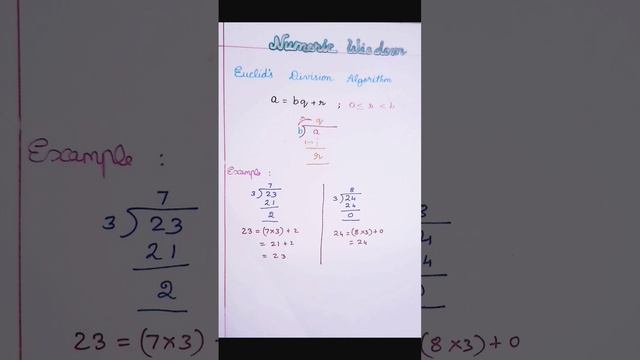 Numeric Wisdom
Euclid's Division Algorithm
a = bq + r ; 0 ≤ r < b
q
b) a
r
Example :
7
3) 23
21
2
23 = (7×3) + 2
= 21 + 2
= 23
8
3) 24
24
0
24 = (8×3) + 0
= 24
Example :
7
3) 23
21
2
23 = (7×3) +
3
4
4
(8×3) + 0